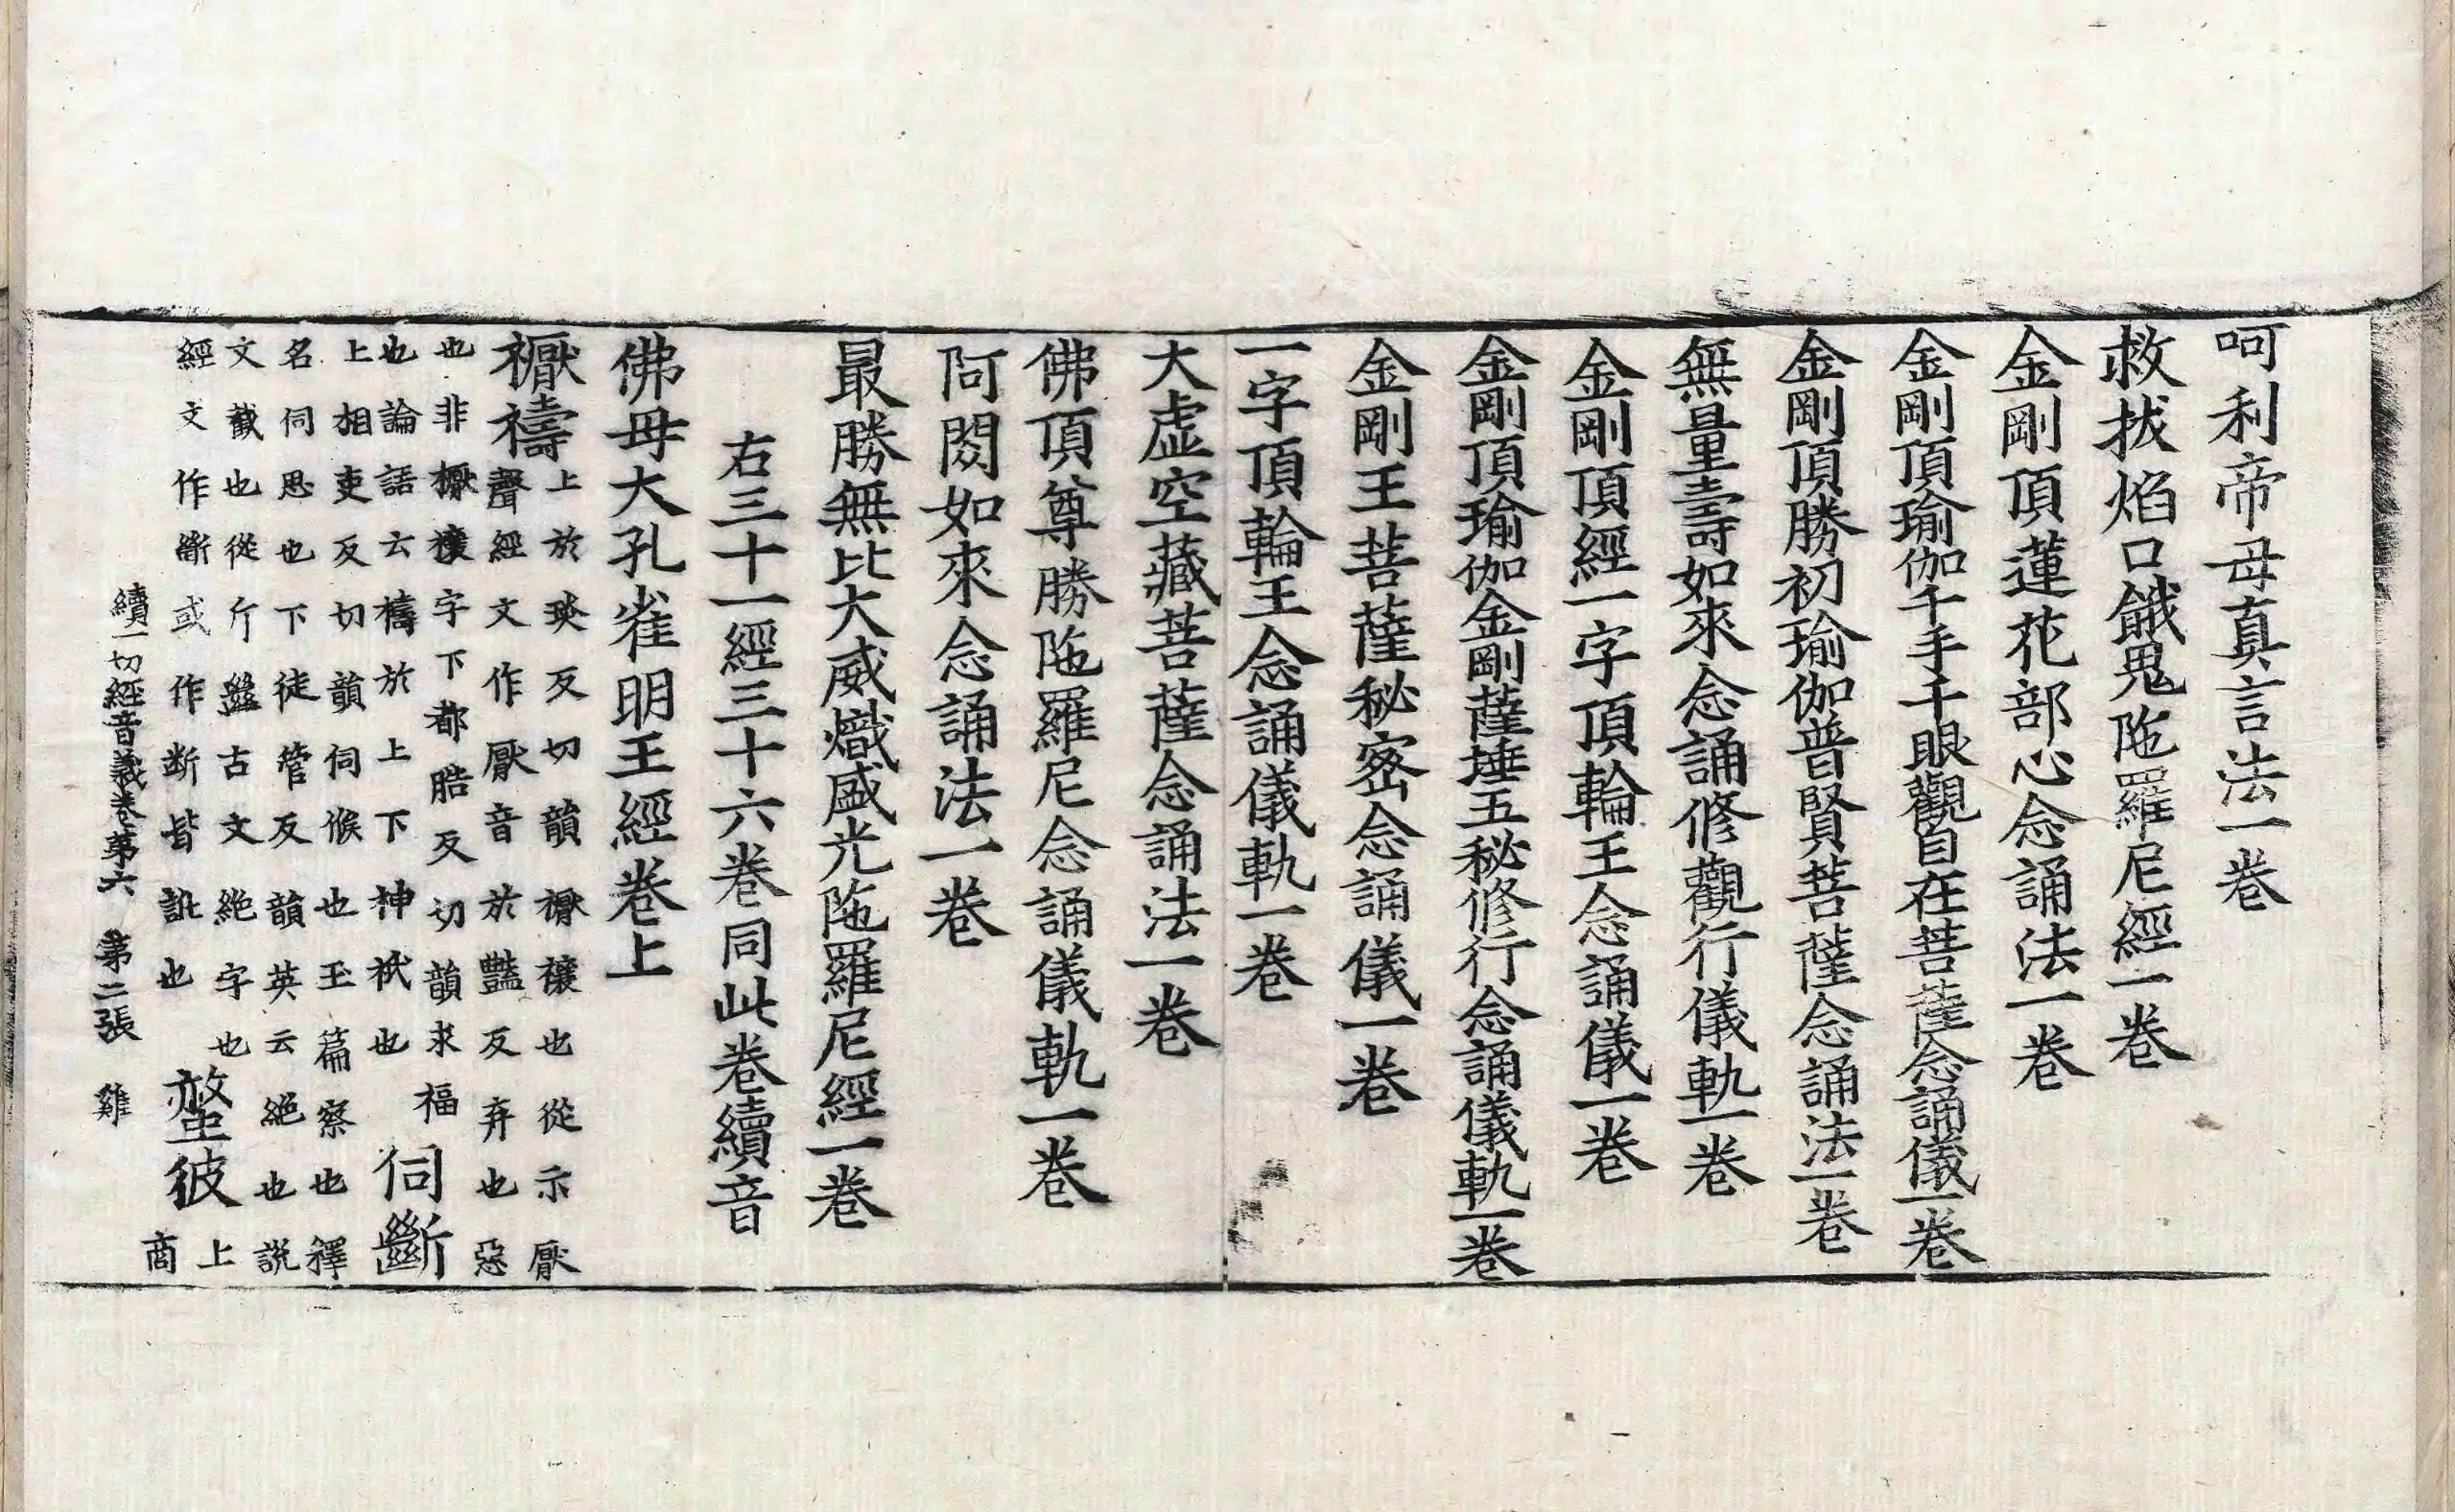 呵利帝母真言法一卷
救拔焰口餓鬼陁羅尼經一卷
金剛頂蓮花部心念誦法一卷
金剛頂瑜伽千手千眼觀自在菩薩念誦儀一卷
金剛頂勝初瑜伽普賢菩薩念誦法一卷
無量壽如來念誦修觀行儀軌一卷
金剛頂經一字頂輪王念誦儀一卷
金剛頂瑜伽金剛薩埵五秘修行念誦儀軌一卷
金剛王菩薩秘密念誦儀一卷
一字頂輪王念誦儀軌一卷
大虛空藏菩薩念誦法一卷
佛頂尊勝陁羅尼念誦儀軌一卷
阿閦如來念誦法一卷
最勝無比大威熾盛光陁羅尼經一卷
右三十一經三十六卷同此卷續音
佛母大孔雀明王經卷上
𥜒禱
上於琰反切韻𥜒禳也從示厭
聲經文作厭音於豔反弃也惡
也非𥜒禳字下都晧反切韻求福
也論語云禱於上下神祇也
伺斷
上相吏反切韻伺候也玉篇察也釋
名伺思也下徒管反韻英云絶也説
文截也從斤𢇍古文絶字也
經文作㫁或作断皆訛也
螫彼
上
商
續一切經音義卷第六 第二張 雞